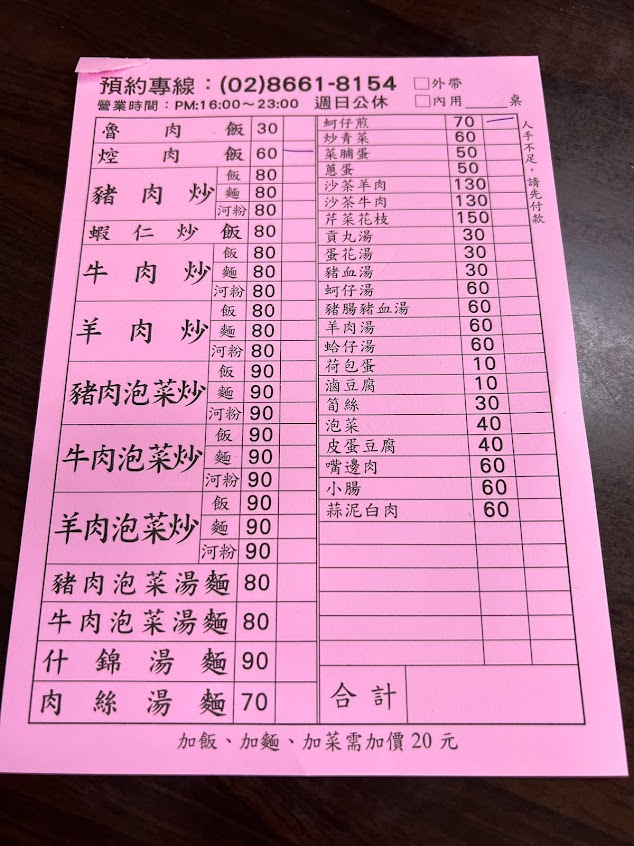 預約專線：(02)8661-8154 □外帶
營業時間：PM:16:00～23:00 週日公休 □內用____桌
人手不足，請先付款
魯肉飯 30
焢肉飯 60 —
豬肉炒 飯 80
麵 80
河粉 80
蝦仁炒飯 80
牛肉炒 飯 80
麵 80
河粉 80
羊肉炒 飯 80
麵 80
河粉 80
豬肉泡菜炒 飯 90
麵 90
河粉 90
牛肉泡菜炒 飯 90
麵 90
河粉 90
羊肉泡菜炒 飯 90
麵 90
河粉 90
豬肉泡菜湯麵 80
牛肉泡菜湯麵 80
什錦湯麵 90
肉絲湯麵 70
蚵仔煎 70 —
炒青菜 60
菜脯蛋 50
蔥蛋 50
沙茶羊肉 130
沙茶牛肉 130
芹菜花枝 150
貢丸湯 30
蛋花湯 30
豬血湯 30
蚵仔湯 60
豬腸豬血湯 60
羊肉湯 60
蛤仔湯 60
荷包蛋 10
滷豆腐 10
筍絲 30
泡菜 40
皮蛋豆腐 40
嘴邊肉 60
小腸 60
蒜泥白肉 60
合計
加飯、加麵、加菜需加價 20 元